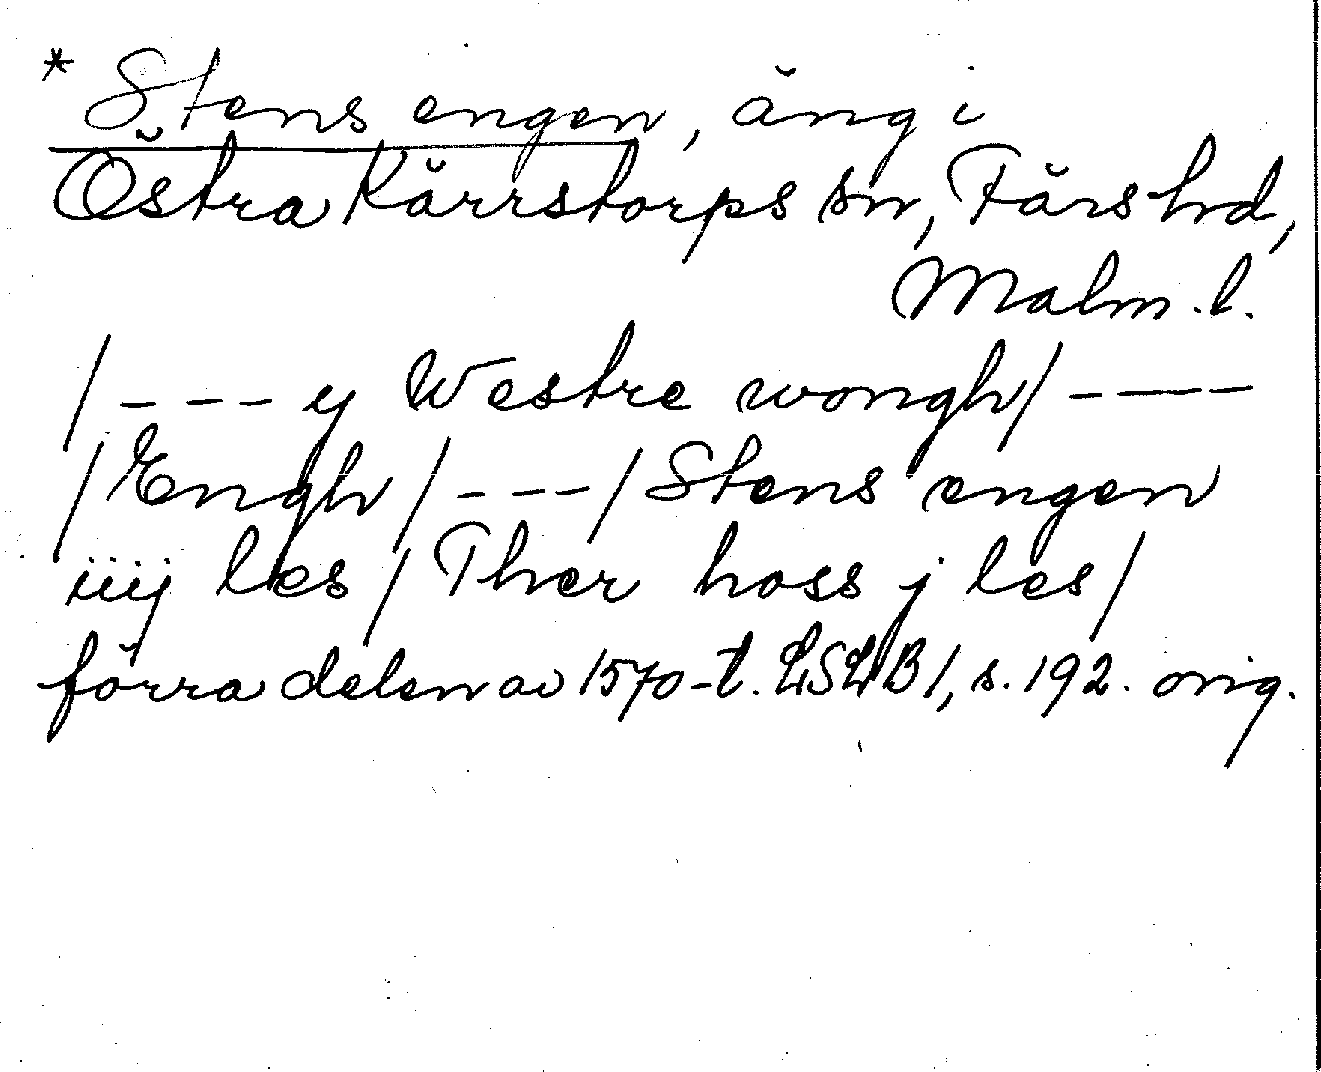 * Stens engen, äng i
Östra Kärrstorps sn, Färs hd,
Malm. l.
/--- y Westre wongh/ ----
/Engh/ --- / Stens engen
iiij les / Ther hoss j les /
förra delen av 1570-t. LSLB 1, s. 192. orig.